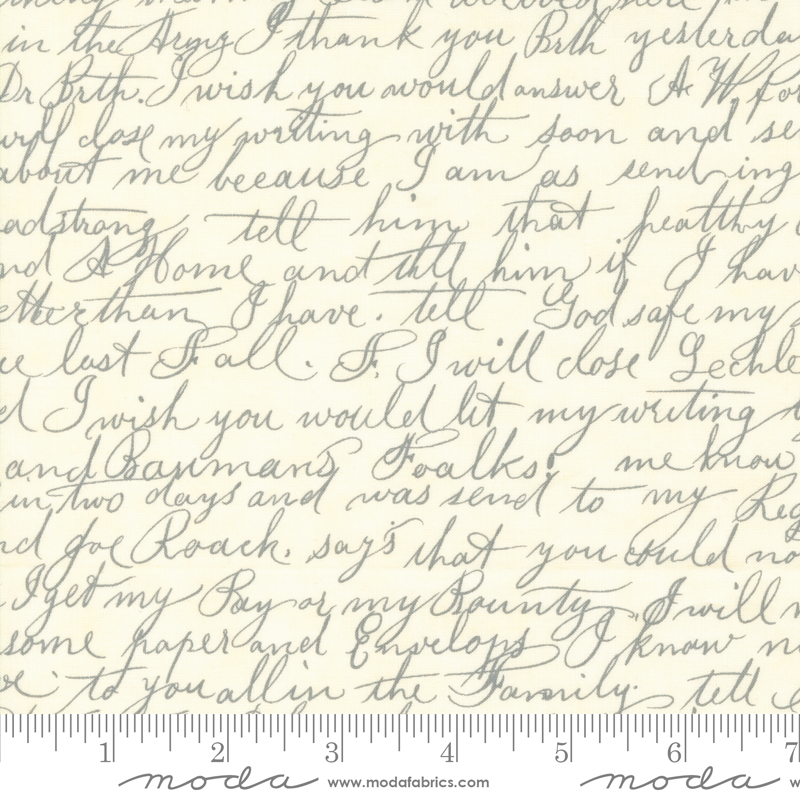 in the Army I thank you Brth yesterda
Dr Brth. I wish you would answer A W for
will close my writing with soon and se
about me because I am as sending
adstrong tell him that healthy
nd A Home and till him if I hav
etter than I have. tell God safe my
ue last Fall. F. I will close Lechle
d I wish you would let my writing
and Baumans Foalks. me know
in two days and was send to my Reg
nd Joe Roach. say's that you could no
I get my Pay or my Bounty. I will
some paper and Envelops I know n
ve to you all in the Family. tell
1 2 3 4 5 6 7
moda www.modafabrics.com moda w